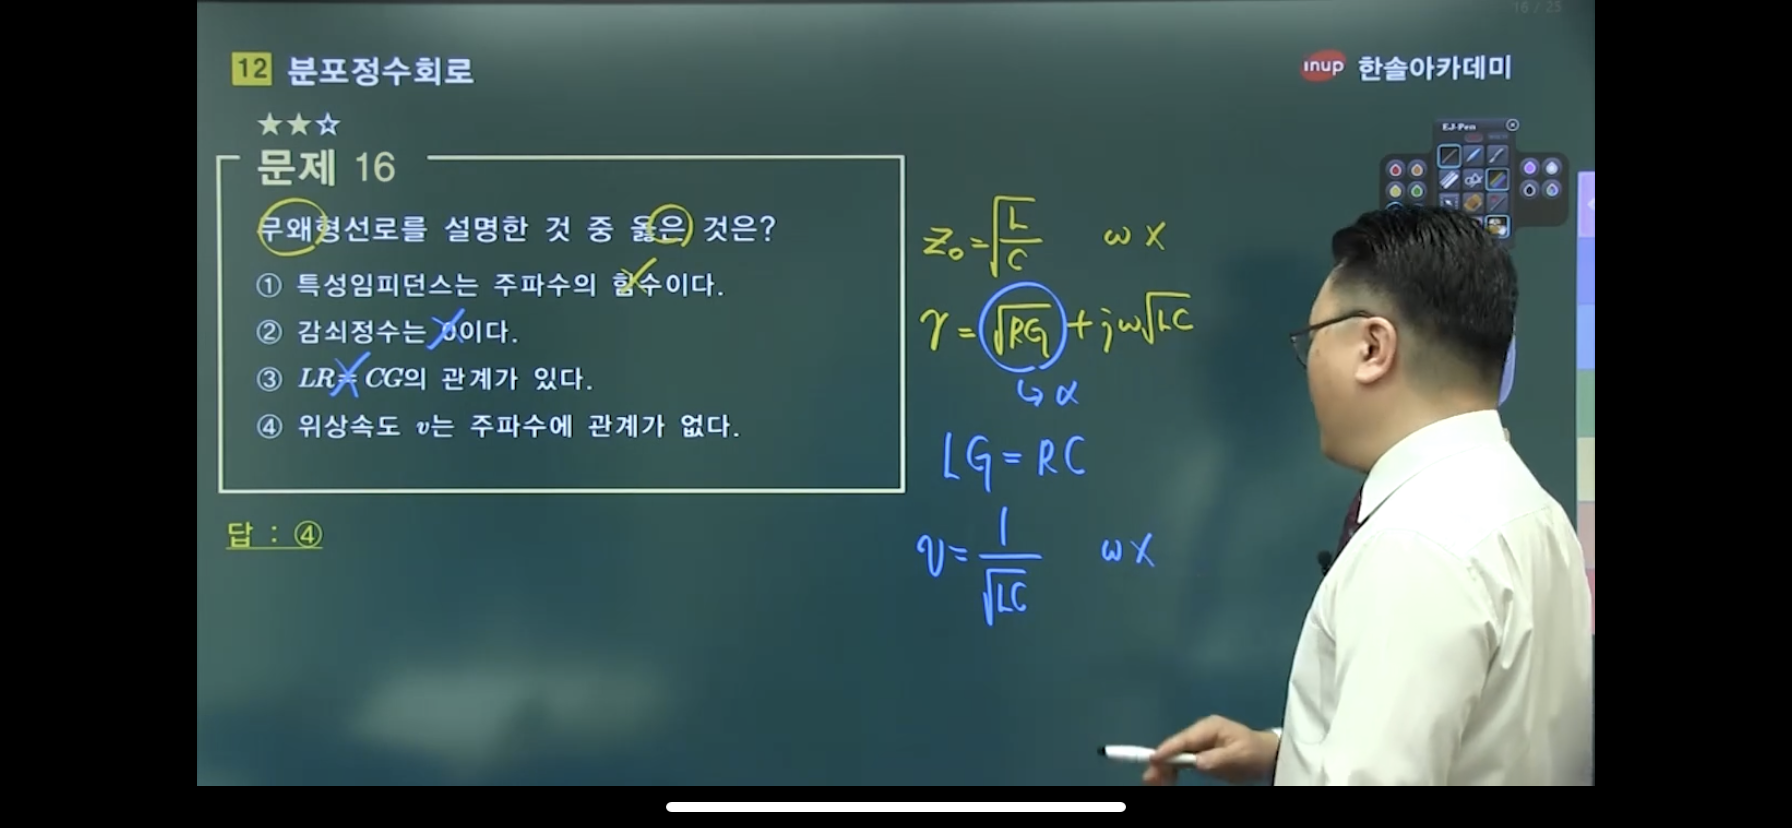 16 / 25
12 분포정수회로
inup 한솔아카데미
★★☆
EJ-Pen
문제 16
무왜형선로를 설명한 것 중 옳은 것은?
① 특성임피던스는 주파수의 함수이다.
② 감쇠정수는 0이다.
③ LR = CG의 관계가 있다.
④ 위상속도 v는 주파수에 관계가 없다.
답 : ④
Z₀ = √(L/C) ω X
γ = √RG + jω√LC
↳ α
LG = RC
v = 1/√LC ω X